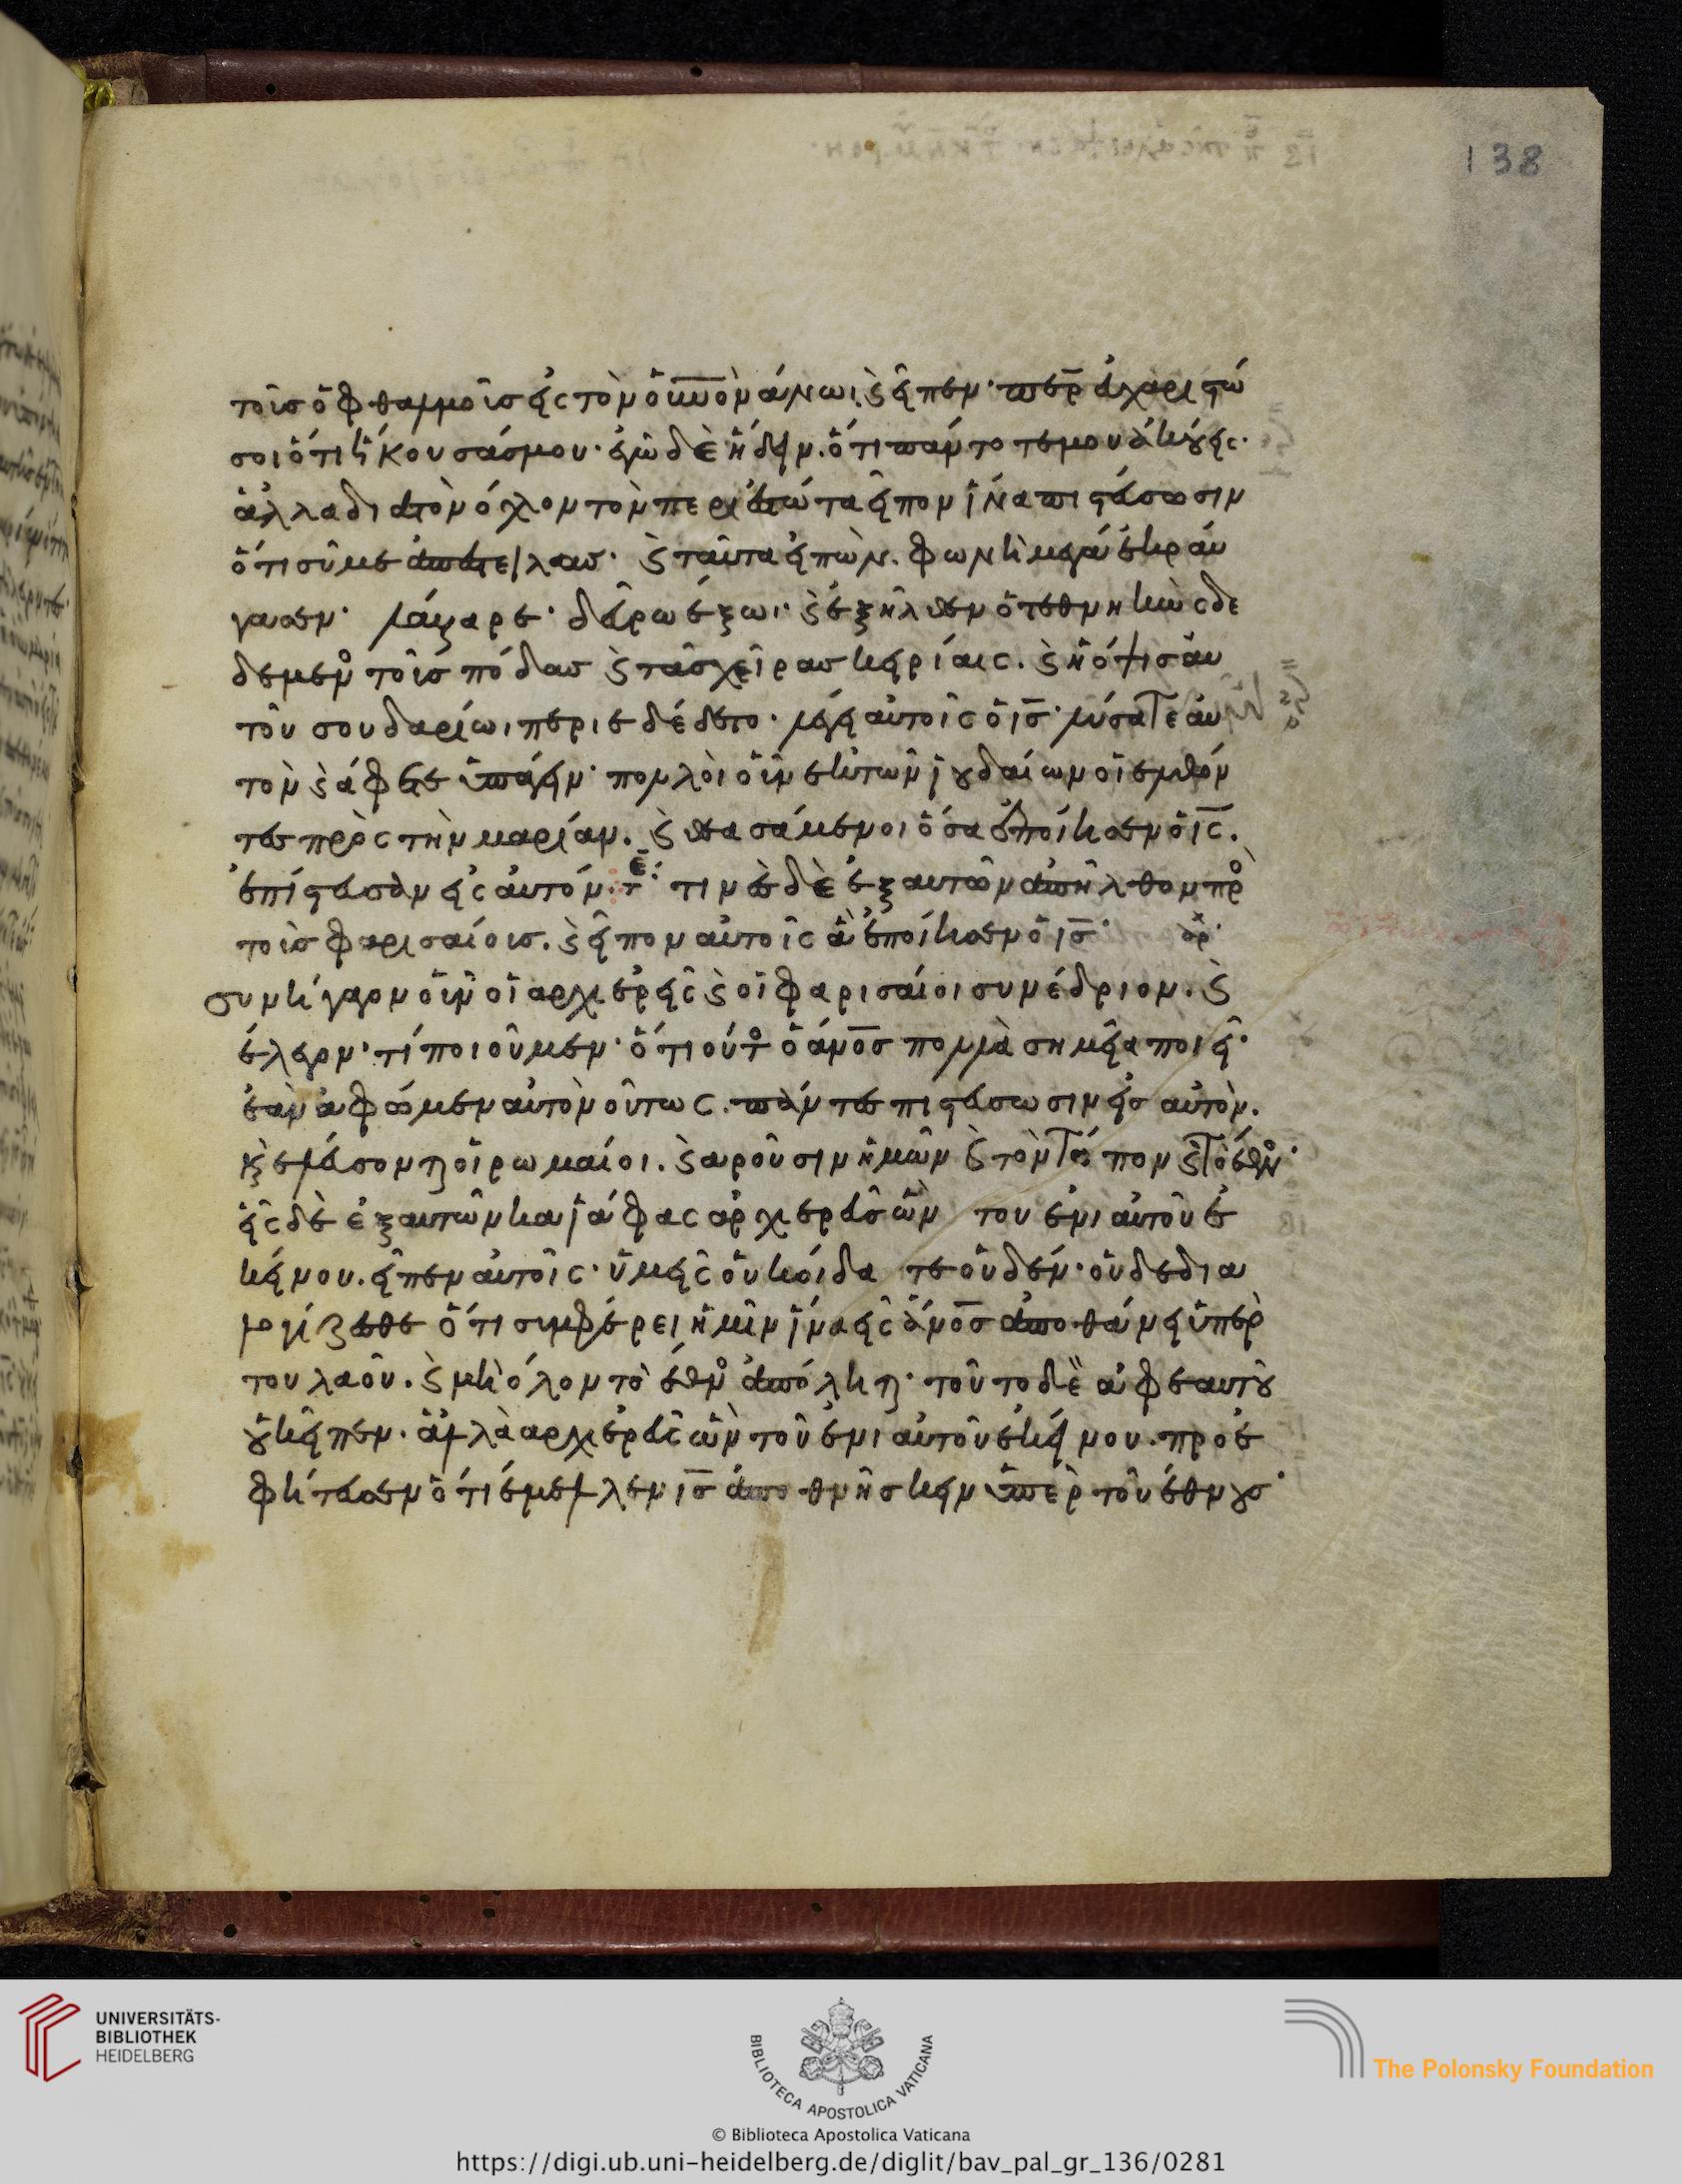 138
τοῖσ ὀφθαλμοῖσ εἰς τὸν οὐ̅νον ἄνωι, ϗ εἶπεν· πε̅ρ εὐχαριστῶ
σοι ὅτι ἤκουσάσμου· ἐγὼ δὲ ἤδειν. ὅτι πάντοτεμου ἀκούεις·
ἀλλα διατὸν ὄχλον τὸν περιεστῶτα εἶπον ἵνα πιστεύσωσιν
ὅτι σύ με ἀπέστειλασ· ϗ ταῦτα εἰπὼν. φωνῆ μεγάλη ἐκραύ
γασεν· λάζαρε· δεῦρω ἔξωι· ϗ ἐξῆλθεν ὁ τεθνηκὼς δε
δεμενο τοῖσ πόδασ ϗ τὰσ χεῖρασ κειρίαις. ϗ ἡ ὄψισ αὐ
τοῦ σουδαρίωι περιεδέδετο· λέγει αὐτοῖς ὁ ι̅σ· λύσατε αὐ
τὸν ϗ ἄφετε ὑπάγειν· πολλοὶ οὖν ἐκ τῶν ἰουδαίων οἱ ἐλθόν
τεσ πρὸς τὴν μαρίαν. ϗ θεασάμενοι ὅσα ἐποίησεν ὁ ι̅ς.
ἐπίστευσαν εἰς αὐτόν. τε: τινὲσ δὲ ἐξ αυτῶν ἀπῆλθον πρ
τοὺσ φαρισαίουσ. ϗ εἶπον αὐτοῖς ἃ ἐποίησεν ὁ ι̅σ· ἀρ
συνήγαγον οὖν οἱ αρχιερεῖς ϗ οἱ φαρισαίοι συνέδριον. ϗ
ἔλεγον· τί ποιοῦμεν· ὅτι οὗτο ὁ ἄνο̅σ πολλὰ σημεῖα ποιεῖ·
ἐὰν ἀφῶμεν αὐτὸν οὕτως. πάντεσ πιστεύσωσιν εἰσ αὐτὸν.
ϗ ἐλεύσονται οἱ ρωμαίοι. ϗ αροῦσιν ἡμῶν ϗ τὸν τόπον ϗ τὸ ἔθνο·
εἷς δὲ ἐξ αυτῶν καϊάφας ἀρχιερεὺσ ὢν του ἐνιαυτοῦ ἐ
κείνου. εἶπεν αὐτοῖς· ὑμεῖς οὐκ οἴδατε οὐδέν· οὐδε δια
λογίζεσθε ὅτι συμφέρει ἡμῖν ἵνα εἷς ἄνο̅σ ἀποθάνη ὑπερ
του λαοῦ. ϗ μὴ ὅλον τὸ ἔθνο ἀπόληται· τοῦτο δὲ ἀφ ἑαυτοῦ
οὐκ εἶπεν. ἀλλὰ αρχιερεὺς ὢν τοῦ ἐνιαυτοῦ ἐκείνου. προε
φήτευσεν ὅτι ἔμελλεν ι̅σ ἀποθνήσκειν ὑπὲρ τοῦ ἔθνουσ·
UNIVERSITÄTS-
BIBLIOTHEK
HEIDELBERG
BIBLIOTECA APOSTOLICA VATICANA
The Polonsky Foundation
© Biblioteca Apostolica Vaticana
https://digi.ub.uni-heidelberg.de/diglit/bav_pal_gr_136/0281